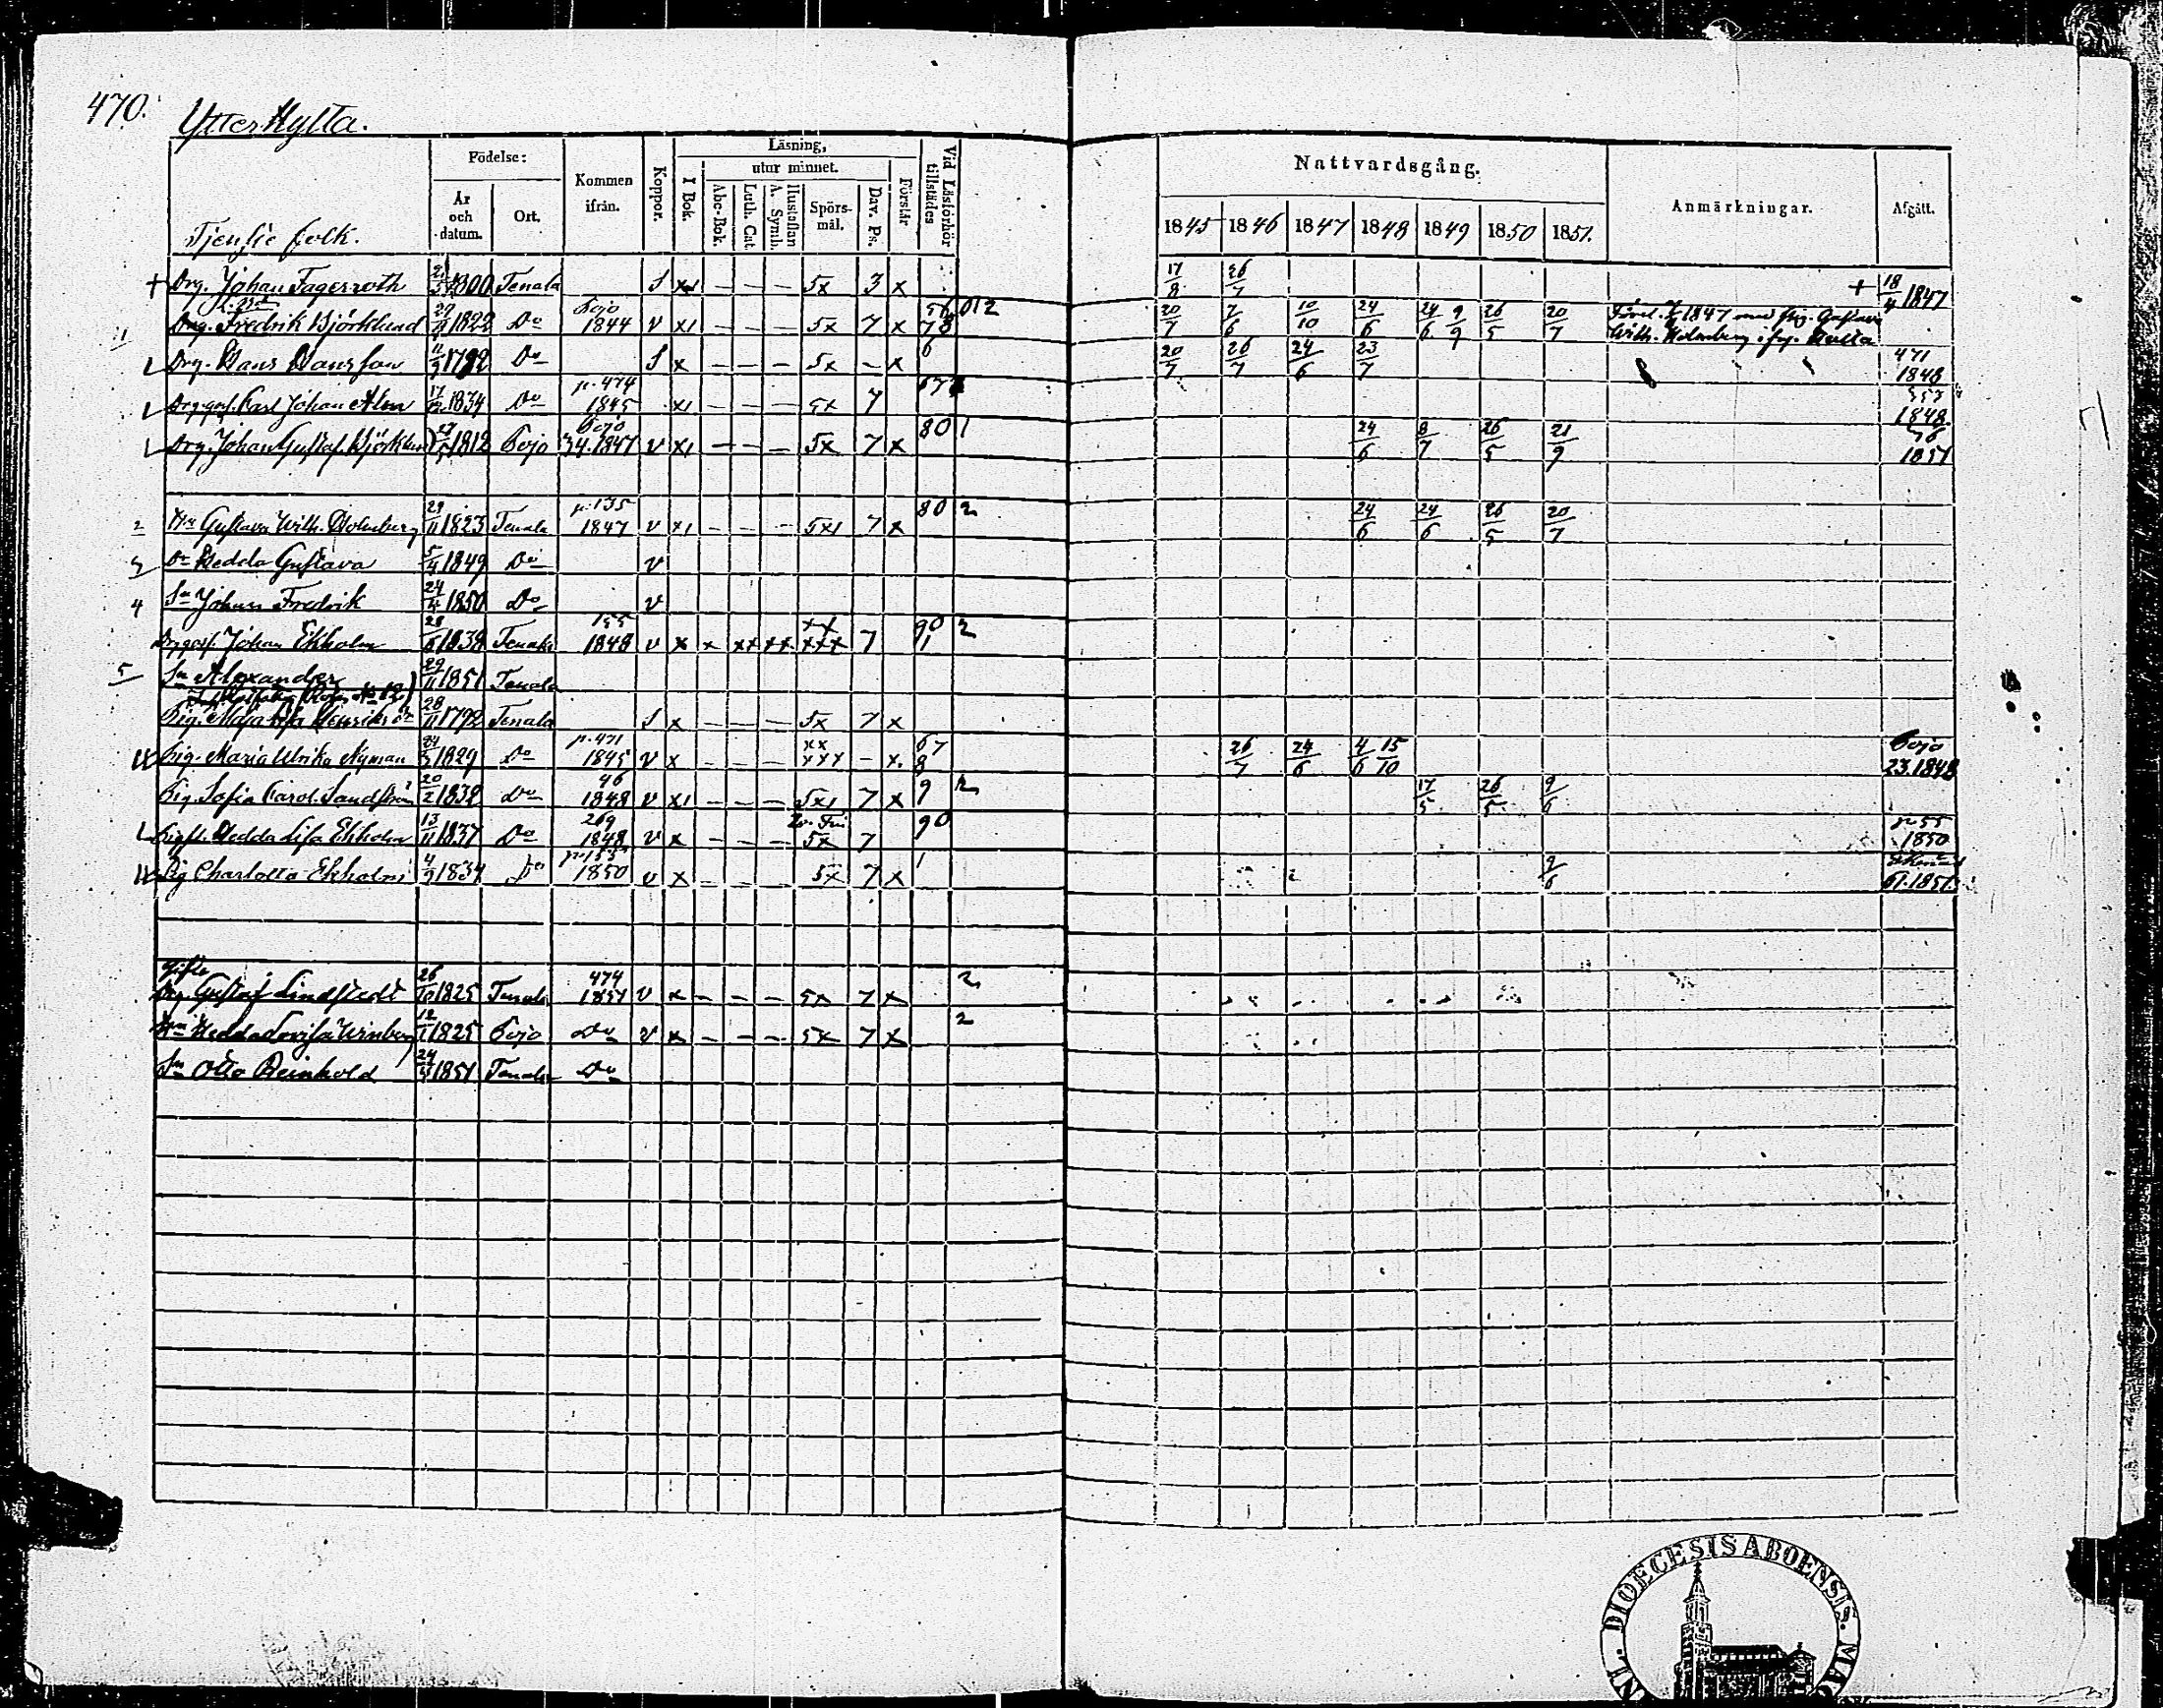 470.
Ytterkylta.
Födelse:
Kommen ifrån.
Koppor.
Läsning,
utur minnet.
I Bok.
Abc-Bok.
Luth. Cat.
Hustaflan A. Symb.
Spörsmål.
Dav. Ps.
Förstår
Vid Läsförhör tillstädes
År och datum.
Ort.
Nattvardsgång.
Anmärkningar.
Afgått.
1845 1846 1847 1848 1849 1850 1851.
Tjenste folk.
+ Drg. Johan Fagerroth 1800 Tenala S 5x 3 x 17/8 26/7 + 18/4 1847
1 Drg. Fredrik Björklund 1822 Do Pojo 1844 v x1 - - - 5x 7 x 20/7 7/6 10/10 24/6 24/6 9/9 26/5 20/7 1847 med pig. Gustava Wilh. Holmberg
Drg. Hans Hansson 1792 Do S x - - - 5x - x 6 20/7 26/7 24/6 23/7 471 1848
Drg.goss. Carl Johan Alm 17 1834 Do p. 474 1845 x1 5x 7 67 1848.
Drg. Johan Gustaf Björklund 1812 Pojo Pojo 34.1847 v x1 - - - 5x 7 x 80 1 24/6 8/7 26/5 21/9 1851
2 Gustava Wilh. Holmberg 29/11 1823 Tenala p. 135 1847 v x1 - - - 5x1 7 x 80 2 24/6 24/6 26/5 20/7
3 Dr Hedda Gustava 5/4 1849 Do v
4 Sn Johan Fredrik 24/4 1850 Do v
Drg.goss. Johan Ekholm 28/6 1838 Tenala 155 1848 v x x xx xx xxx 7 90 1 2
5 Sn Alexander 29/11 1851 Tenala
Pig. Maja Henriksdr 28/11 1792 Tenala S x - - - 5x 7 x
Pig. Maria Ulrika Nyman 1829 Do p. 471 1845 v x xx xxx - x. 67 8 26/7 24/6 4/6 15/10 Pojo 23.1848
Pig. Sofia Carol. Sandström 20/2 1832 Do 46 1848 v x1 - - - 5x1 7 x 9 2 17/5 26/5 9/6
Pigfl. Hedda Lisa Ekholm 13/11 1837 Do 269 1848 v x - - - 5x 7 90 p 55 1850
Pig Charlotta Ekholm 4/9 1834 Do p. 155 1850 v x - - - 5x 7 x 1 9/6 61.1851.
Gifte
Drg. Gustaf Lindstedt 26/10 1825 Tenala 474 1851 v x - - - 5x 7 x 2
Hedda Lovisa Wirnberg 12/1 1825 Pojo Do v x - - - 5x 7 x 2
Sn Otto Reinhold 24 1851 Tenala Do
DIOECESIS ABOENSIS. MAG